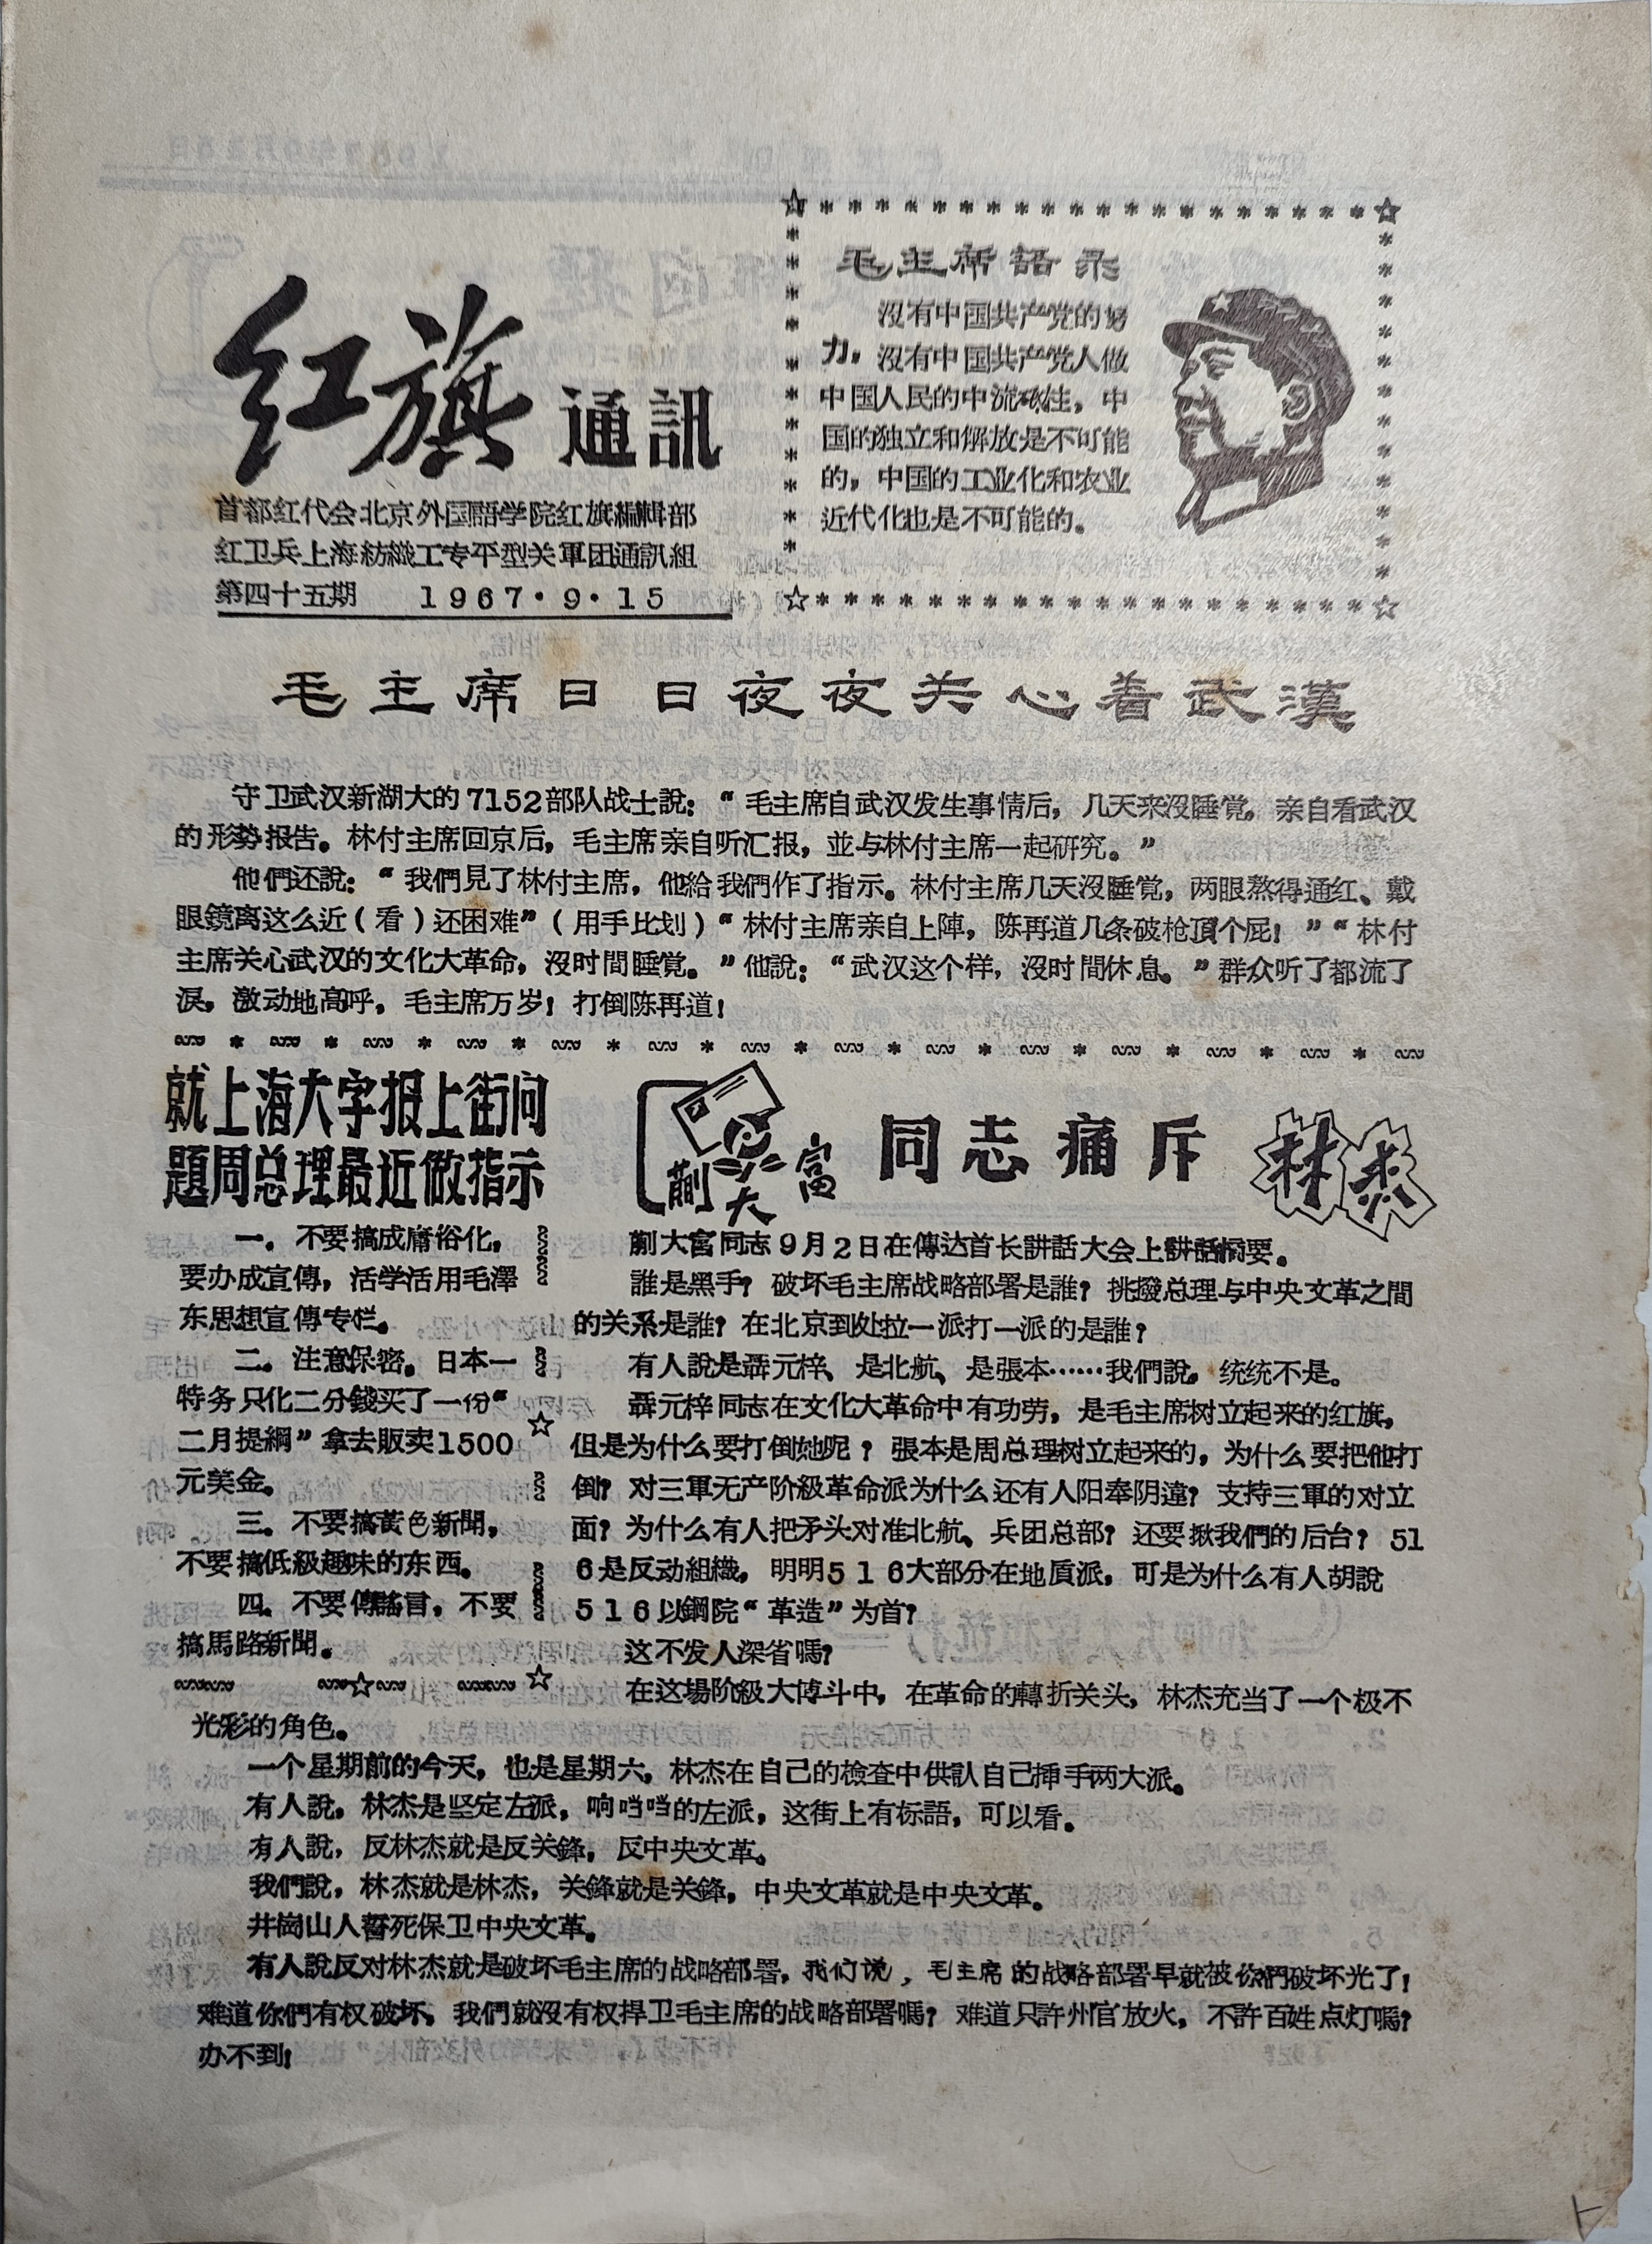 红旗 通訊
首都红代会北京外国語学院红旗編輯部
红卫兵上海紡織工专平型关軍团通訊組
第四十五期 1967·9·15
毛主席語录
沒有中国共产党的努
力，沒有中国共产党人做
中国人民的中流砥柱，中
国的独立和解放是不可能
的，中国的工业化和农业
近代化也是不可能的。
毛主席日日夜夜关心着武漢
守卫武汉新湖大的7152部队战士說：“毛主席自武汉发生事情后，几天来沒睡觉，亲自看武汉
的形势报告。林付主席回京后，毛主席亲自听汇报，並与林付主席一起研究。”
他們还說：“我們見了林付主席，他給我們作了指示。林付主席几天沒睡覚，两眼熬得通红、戴
眼鏡离这么近（看）还困难”（用手比划）“林付主席亲自上陣，陈再道几条破枪頂个屁！”“林付
主席关心武汉的文化大革命，沒时間睡覚。”他說：“武汉这个样，沒时間休息。”群众听了都流了
淚，激动地高呼，毛主席万岁！打倒陈再道！
就上海大字报上街问
題周总理最近做指示
一．不要搞成庸俗化，
要办成宣傳，活学活用毛澤
东思想宣傳专栏。
二．注意保密。日本一
特务只化二分錢买了一份“
二月提綱”拿去販卖1500
元美金。
三．不要搞黃色新聞，
不要搞低級趣味的东西。
四．不要傳謠言，不要
搞馬路新聞。
蒯大富同志痛斥林杰
蒯大富同志9月2日在傳达首长讲話大会上讲話摘要。
誰是黑手？破坏毛主席战略部署是誰？挑撥总理与中央文革之間
的关系是誰？在北京到处拉一派打一派的是誰？
有人說是聶元梓、是北航、是張本……我們說，统统不是。
聶元梓同志在文化大革命中有功劳，是毛主席树立起来的红旗，
但是为什么要打倒她呢？張本是周总理树立起来的，为什么要把他打
倒？对三軍无产阶級革命派为什么还有人阳奉阴違？支持三軍的对立
面？为什么有人把矛头对准北航、兵团总部？还要揪我們的后台？51
6是反动組織，明明516大部分在地質派，可是为什么有人胡說
516以鋼院“革造”为首？
这不发人深省嗎？
在这場阶級大博斗中，在革命的轉折关头，林杰充当了一个极不
光彩的角色。
一个星期前的今天，也是星期六，林杰在自己的檢查中供認自己揷手两大派。
有人說，林杰是坚定左派，响当当的左派，这街上有标語，可以看。
有人說，反林杰就是反关鋒，反中央文革。
我們說，林杰就是林杰，关鋒就是关鋒，中央文革就是中央文革。
井崗山人誓死保卫中央文革。
有人說反对林杰就是破坏毛主席的战略部署，我们说，毛主席的战略部署早就被你們破坏光了！
难道你們有权破坏，我們就沒有权捍卫毛主席的战略部署嗎？难道只許州官放火，不許百姓点灯嗎？
办不到！